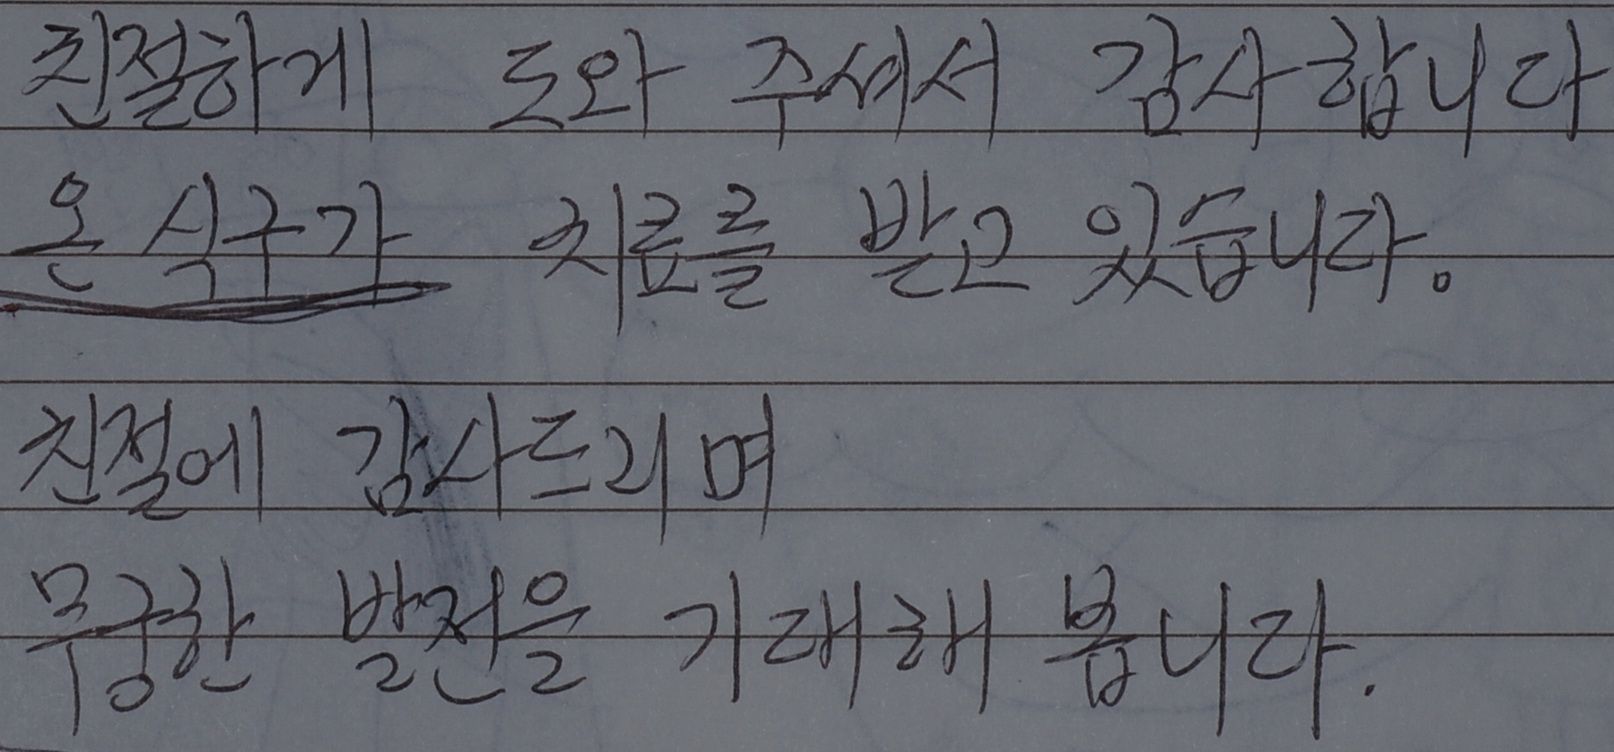 친절하게 도와 주셔서 감사합니다
온 식구가 치료를 받고 있습니다.
친절에 감사드리며
무궁한 발전을 기대해 봅니다.